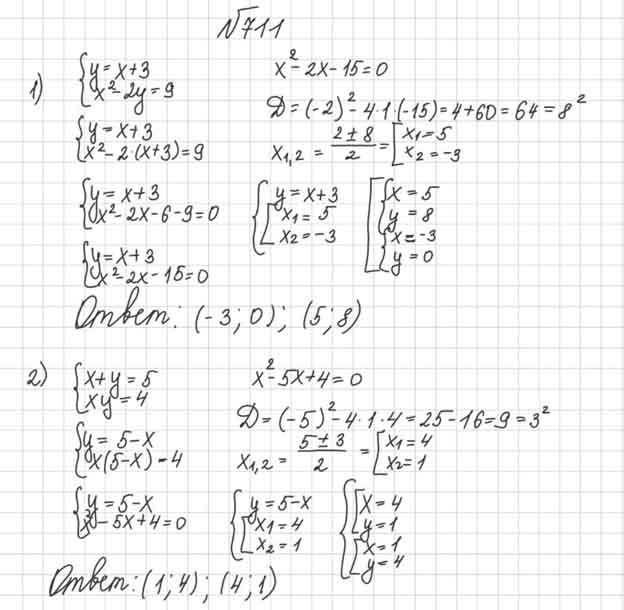 №711
1) {y = x+3
x² - 2y = 9
{y = x+3
x² - 2·(x+3) = 9
{y = x+3
x² - 2x - 6 - 9 = 0
{y = x+3
x² - 2x - 15 = 0
x² - 2x - 15 = 0
D = (-2)² - 4·1·(-15) = 4+60 = 64 = 8²
x1,2 = (2 ± 8)/2 = [x1 = 5
x2 = -3
{y = x+3
[x1 = 5
x2 = -3
[{x = 5
y = 8
{x = -3
y = 0
Ответ: (-3; 0); (5; 8)
2) {x + y = 5
xy = 4
{y = 5-x
x(5-x) - 4
{y = 5-x
x² - 5x + 4 = 0
x² - 5x + 4 = 0
D = (-5)² - 4·1·4 = 25 - 16 = 9 = 3²
x1,2 = (5 ± 3)/2 = [x1 = 4
x2 = 1
{y = 5-x
[x1 = 4
x2 = 1
{[x = 4
y = 1
[x = 1
y = 4
Ответ: (1; 4); (4; 1)